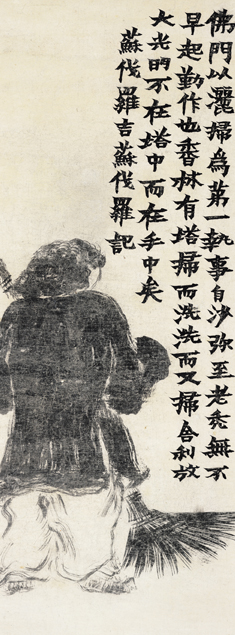 佛門以灑掃為第一執事自沙弥至老禿無不
早起勤作也香林有塔掃而洗洗而又掃舍利放
大光明不在塔中而在手中矣
蘇伐羅吉蘇伐羅記